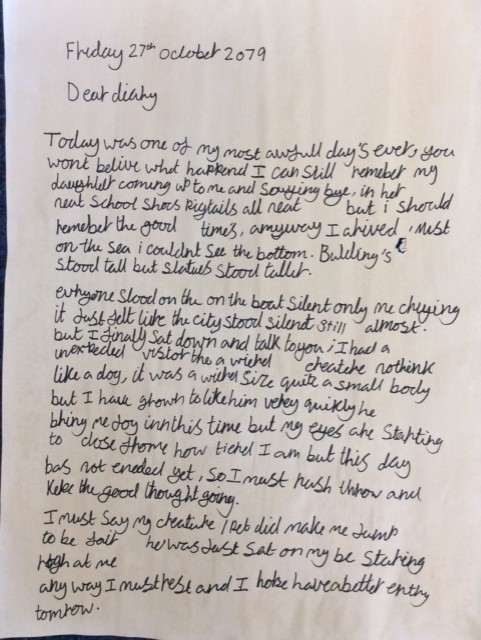 Friday 27th October 2079
Dear diary
Today was one of my most awfull day's ever, you
wont belive what happend I can still remeber my
daughter coming up to me and saying bye, in her
neat School Shoes Pigtails all neat but i should
remeber the good times, anyway I arived, Mist
on the sea i couldnt See the bottom. Building's
Stood tall but Statues Stood taller.
evryone Stood on the on the boat Silent only me crying
it Just felt like the city stood silent Still almost.
but I finally Sat down and talk to you, I had a
unexpected vistor the a creature nothink
like a dog, it was a Size quite a small body
but I have grown to like him very quickly he
bring me Joy inn this time but my eyes are Starting
to close how tierd I am but this day
has not eneded yet, so I must rush throw and
keke the good thought going.
I must Say my creature / pet did make me Jump
to be fair he was Just Sat on my be Staring
at me
any way I must rest and I hope have a better entry
tomrow.